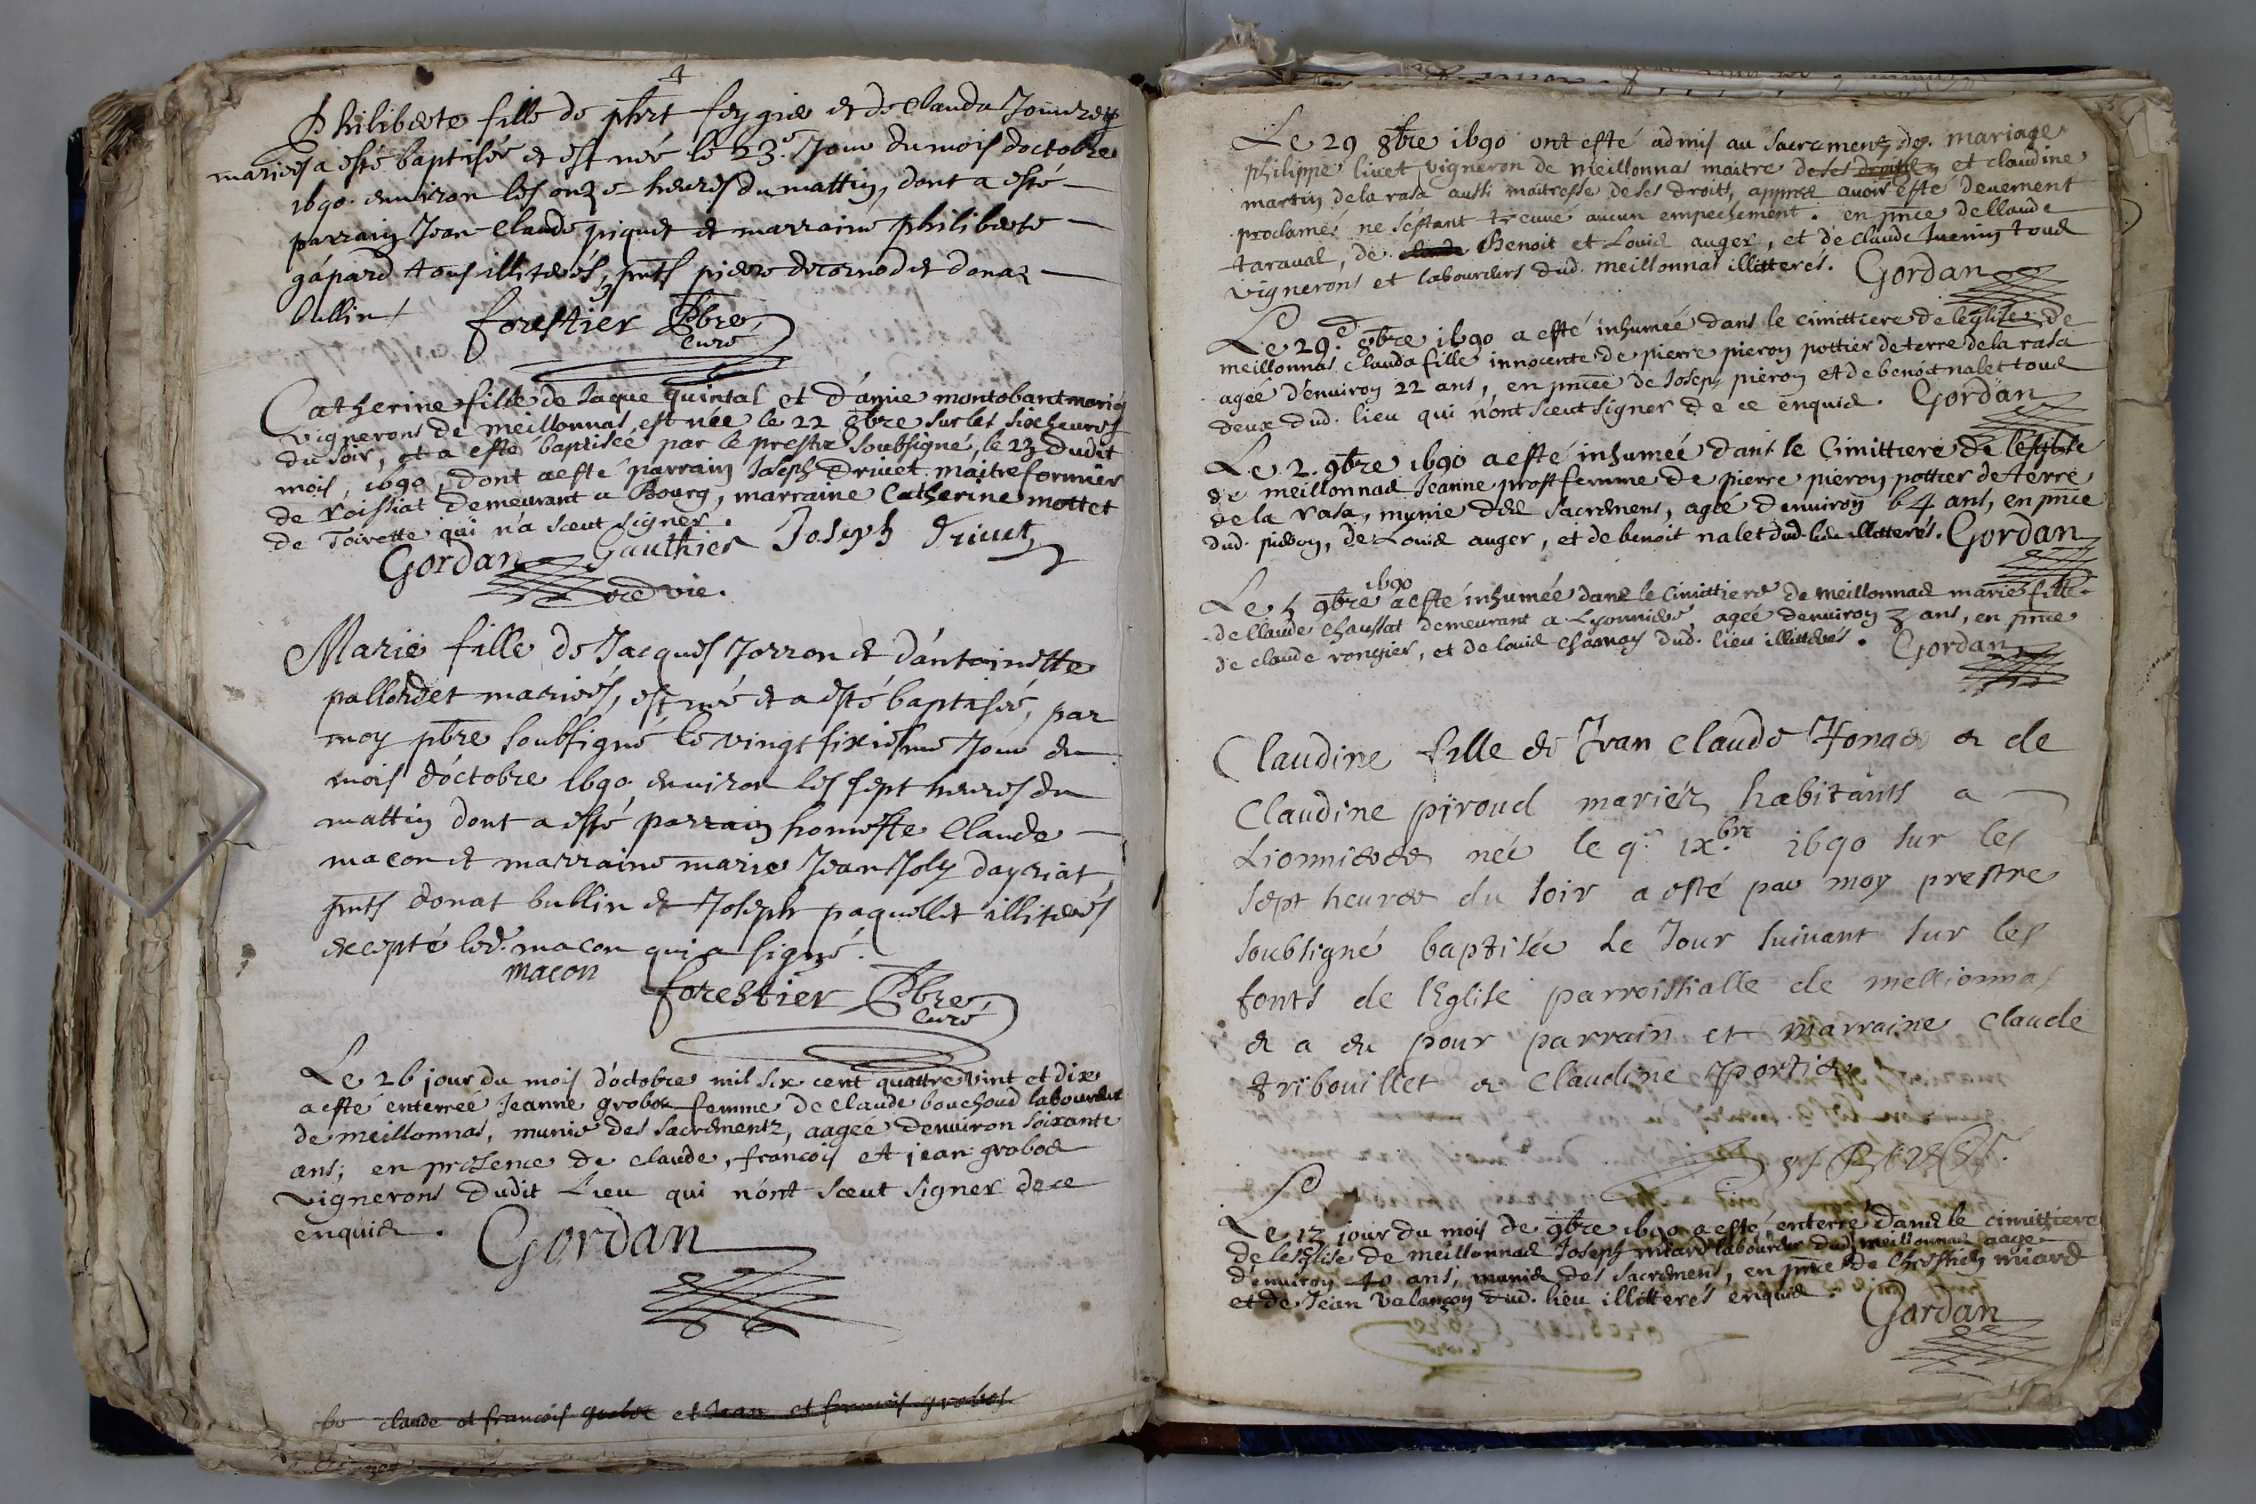 Philiberte fille de phrt feygie et de Clauda Jouurey
mariés a esté baptisée et est née le 23.e Jour du mois doctobre
1690. environ les onze heures du mattin, dont a esté
parrain Jean Claude piquet et marraine philiberte
gápard tous illiterés, pnts piere decornod et donaz
bullin
forestier Pbre
curé
Catherine fille de Jaque quintal et d'anne montobant mariés
vignerons de meillonnas est née le 22 8bre sur les six heures
du soir, et a esté baptisée par le prestre soubsigné, le 23 dudit
mois, 1690, dont a esté parrain Joseph Drivet maitre formier
de roissiat demeurant a Bourg, marraine Catherine mottet
de Toirette qui n'a sceut signer.
Gordan Gauthier Joseph Driuet
vic.
Marie fille de Jacques Jorron et d'antoinette
pallordet mariés, est née et a esté baptisée, par
moy pbre soubsigné le vingt sixiesme Jour du
mois d'octobre 1690 environ les sept heures du
mattin dont a esté parrain honneste Claude
macon et marraine marie Jean Joly dayriat,
pnts donat bullin et Joseph paquellet illiterés
excepté led. macon qui a signé.
macon
forestier Pbre
curé
Le 26 jour du mois d'octobre mil six cent quattre vint et dix
a esté enterreé Jeanne groboz femme de claude bouchoud laboureur
de meillonnas, munie des sacrementz, aagée denuiron soixante
ans; en presence de claude, francois et jean groboz
vignerons dudit Lieu qui n'ont sceut signer de ce
enquis. Gordan
claude et francois groboz et Jean et francois grobos
Le 29 8bre 1690 ont esté admis au sacrement de mariage
philippe liuet vigneron de meillonnas maitre de ses droits et claudine
martin de la rasa aussi maitresse de ses droits, appres auoir esté deuement
proclamés ne s'estant treuué aucun empechement. en pnce de Claude
taraual, de Benoit et Louis auger, et de claude tous
vignerons et laboureurs dud. meillonnas illitterés. Gordan
Le 29.e 8bre 1690 a esté inhumeé dans le cimittiere de l'eglise de
meillonnas clauda fille innocente de pierre pieron pottier de terre de la rasa
ageé d'enuiron 22 ans, en pncee de Joseph pieron et de benoit nalet tous
deux dud. lieu qui n'ont sceut signer de ce enquis. Gordan
Le 2. 9bre 1690 a esté inhumeé dans le Cimittiere de l'eglise
de meillonnas Jeanne prost femme de pierre pieron pottier de terre
de la rasa, munie des sacremens, ageé d'enuiron 64 ans, en pnce
dud. pieron, de Louis auger, et de benoit nalet dud. lieu illitterés. Gordan
1690
Le 5 9bre a esté inhumée dans le Cimittiere de meillonnas marie fille
de Claude Chaussat demeurant a Lyonnieres, agée denuiron 3 ans, en pnce
de claude rongier, et de louis charnay dud. lieu illitterés. Gordan
Claudine fille de Jean Claude & de
Claudine piroud mariéz habitants a
Lionnieres neé le 9.e ix.bre 1690 sur les
sept heures du soir a esté par moy prestre
soubsigné baptisée Le Jour suivant sur les
fonts de l'Eglise parroissialle de mellionnas
& a eu pour parrain et marraine Claude
tribouillet & Claudine
Le 13 jour du mois de 9bre 1690 a esté enterré dans le cimittiere
de l'eglise de meillonnas Joseph miard laboureur dud. meillonnas aagé
denuiron 40 ans, munis des sacremens, en pnce de Chrestien miard
et de Jean Valançon dud. lieu illitterés enquis. Gordan